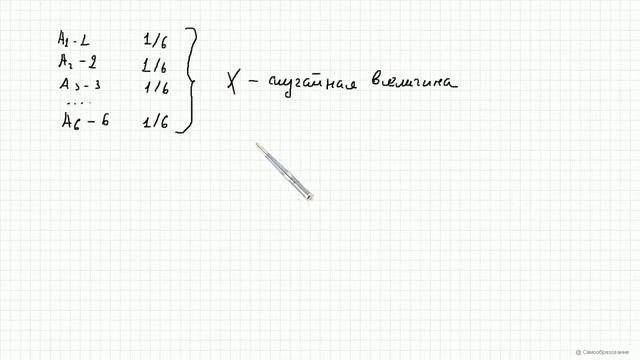 A1 - 1 1/6
A2 - 2 1/6
A3 - 3 1/6
....
A6 - 6 1/6
X - случайная величина
@ Самообразование